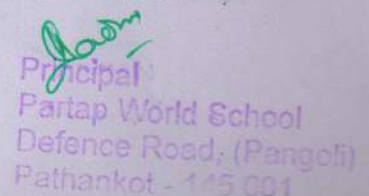 Principal
Partap World School
Defence Road, (Pangoli)
Pathankot - 145 001